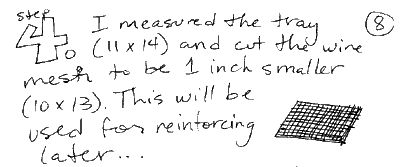 step 4.0 I measured the tray (8)
(11 x 14) and cut the wire
mesh to be 1 inch smaller
(10 x 13). This will be
used for reinforcing
later...